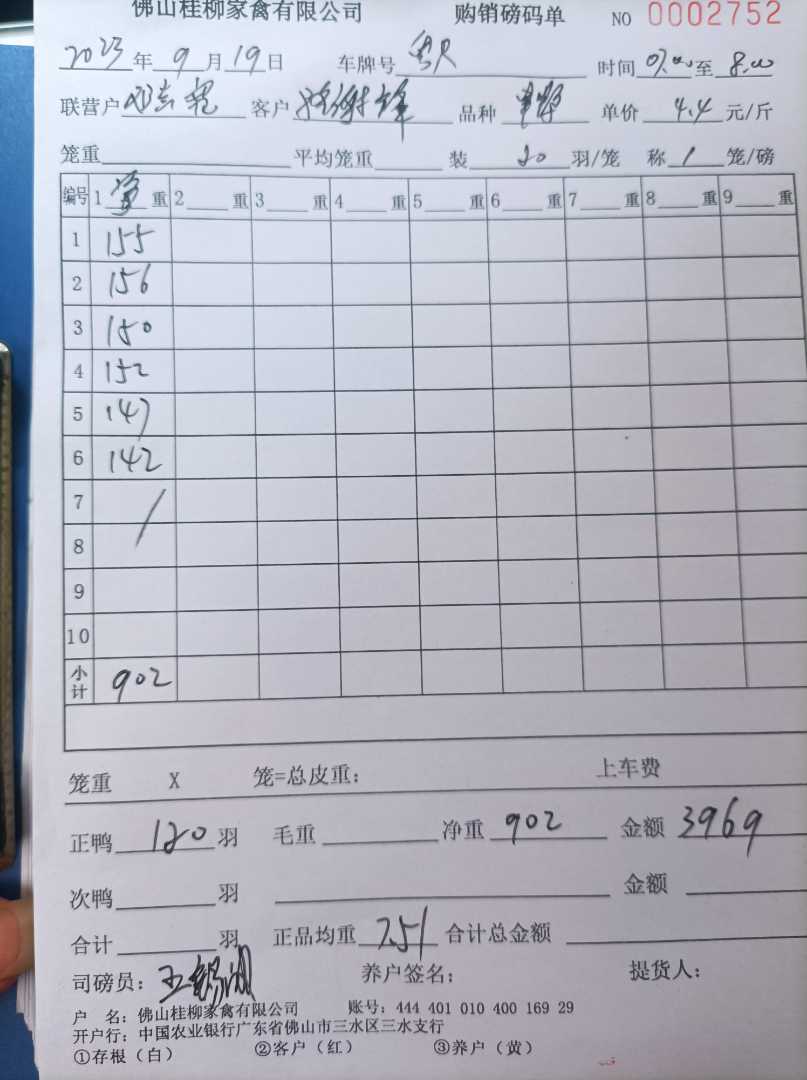 佛山桂柳家禽有限公司 购销磅码单 NO 0002752
2023年9月19日 车牌号 时间 07.00至8.00
联营户 客户 品种 单价4.4元/斤
笼重 平均笼重 装20羽/笼 称1笼/磅
编号 1 重 2 重 3 重 4 重 5 重 6 重 7 重 8 重 9 重
1 155
2 156
3 150
4 152
5 147
6 142
7
8
9
10
小计 902
笼重 X 笼=总皮重: 上车费
正鸭120羽 毛重 净重902 金额3969
次鸭 羽 金额
合计 羽 正品均重7.51 合计总金额
司磅员: 养户签名: 提货人:
户 名: 佛山桂柳家禽有限公司 账号: 444 401 010 400 169 29
开户行: 中国农业银行广东省佛山市三水区三水支行
①存根(白) ②客户(红) ③养户(黄)